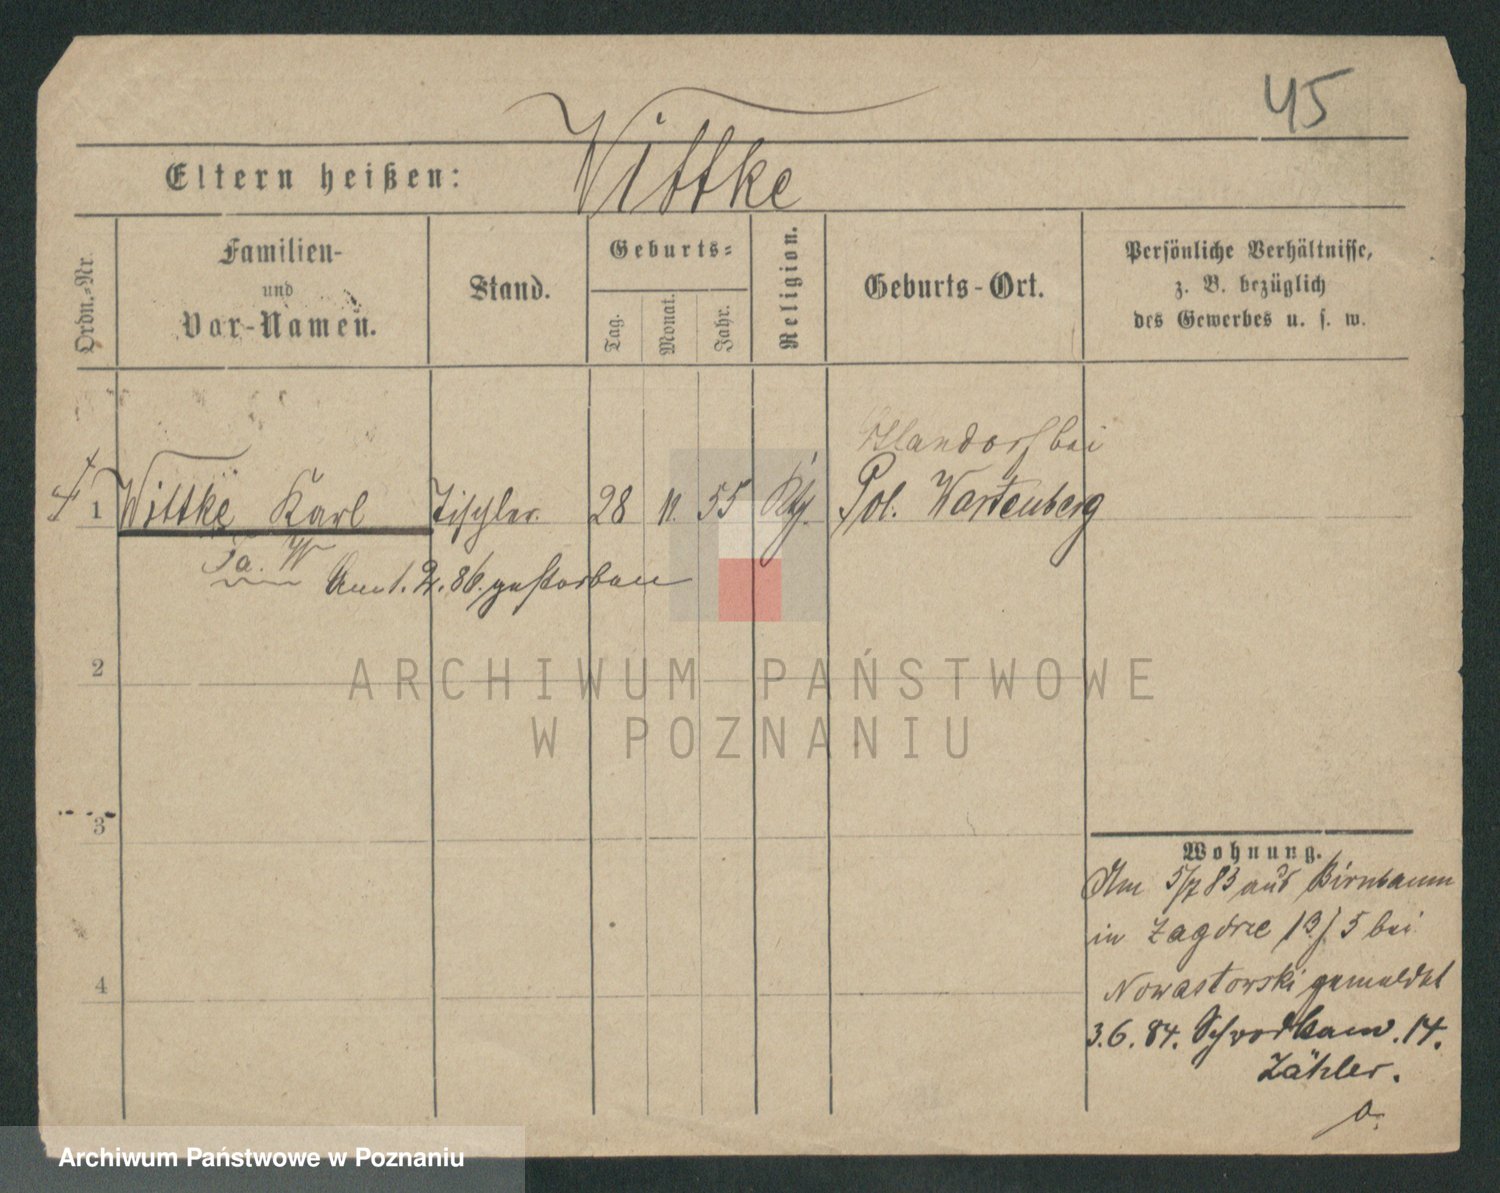 45
Eltern heißen: Wittke
Ordn.-Nr.
Familien-
und
Vor-Namen.
Stand.
Geburts-
Tag.
Monat.
Jahr.
Religion.
Geburts-Ort.
Persönliche Verhältnisse,
z. B. bezüglich
des Gewerbes u. s. w.
bei
1 Wittke Karl Tischler. 28 11. 55 Pol. Wartenberg
Am 1. 2. 86. gestorben
2
3
4
Wohnung.
Am 5/7 83 aus Birnbaum
in Zagórze 13/5 bei
gemeldet
3. 6. 84. Schrodkam. 14.
Zähler.
ARCHIWUM PAŃSTWOWE
W POZNANIU
Archiwum Państwowe w Poznaniu